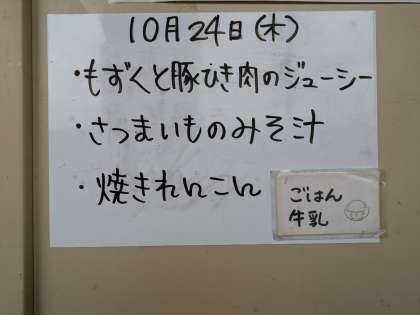 10月24日(木)
・もずくと豚ひき肉のジューシー
・さつまいものみそ汁
・焼きれんこん
ごはん
牛乳